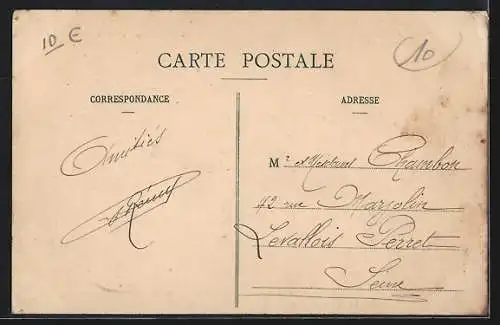 10 €
10
CARTE POSTALE
CORRESPONDANCE
ADRESSE
Amitiés
Mr et Madame Chambon
42 rue Marjolin
Levallois Perret
Seine